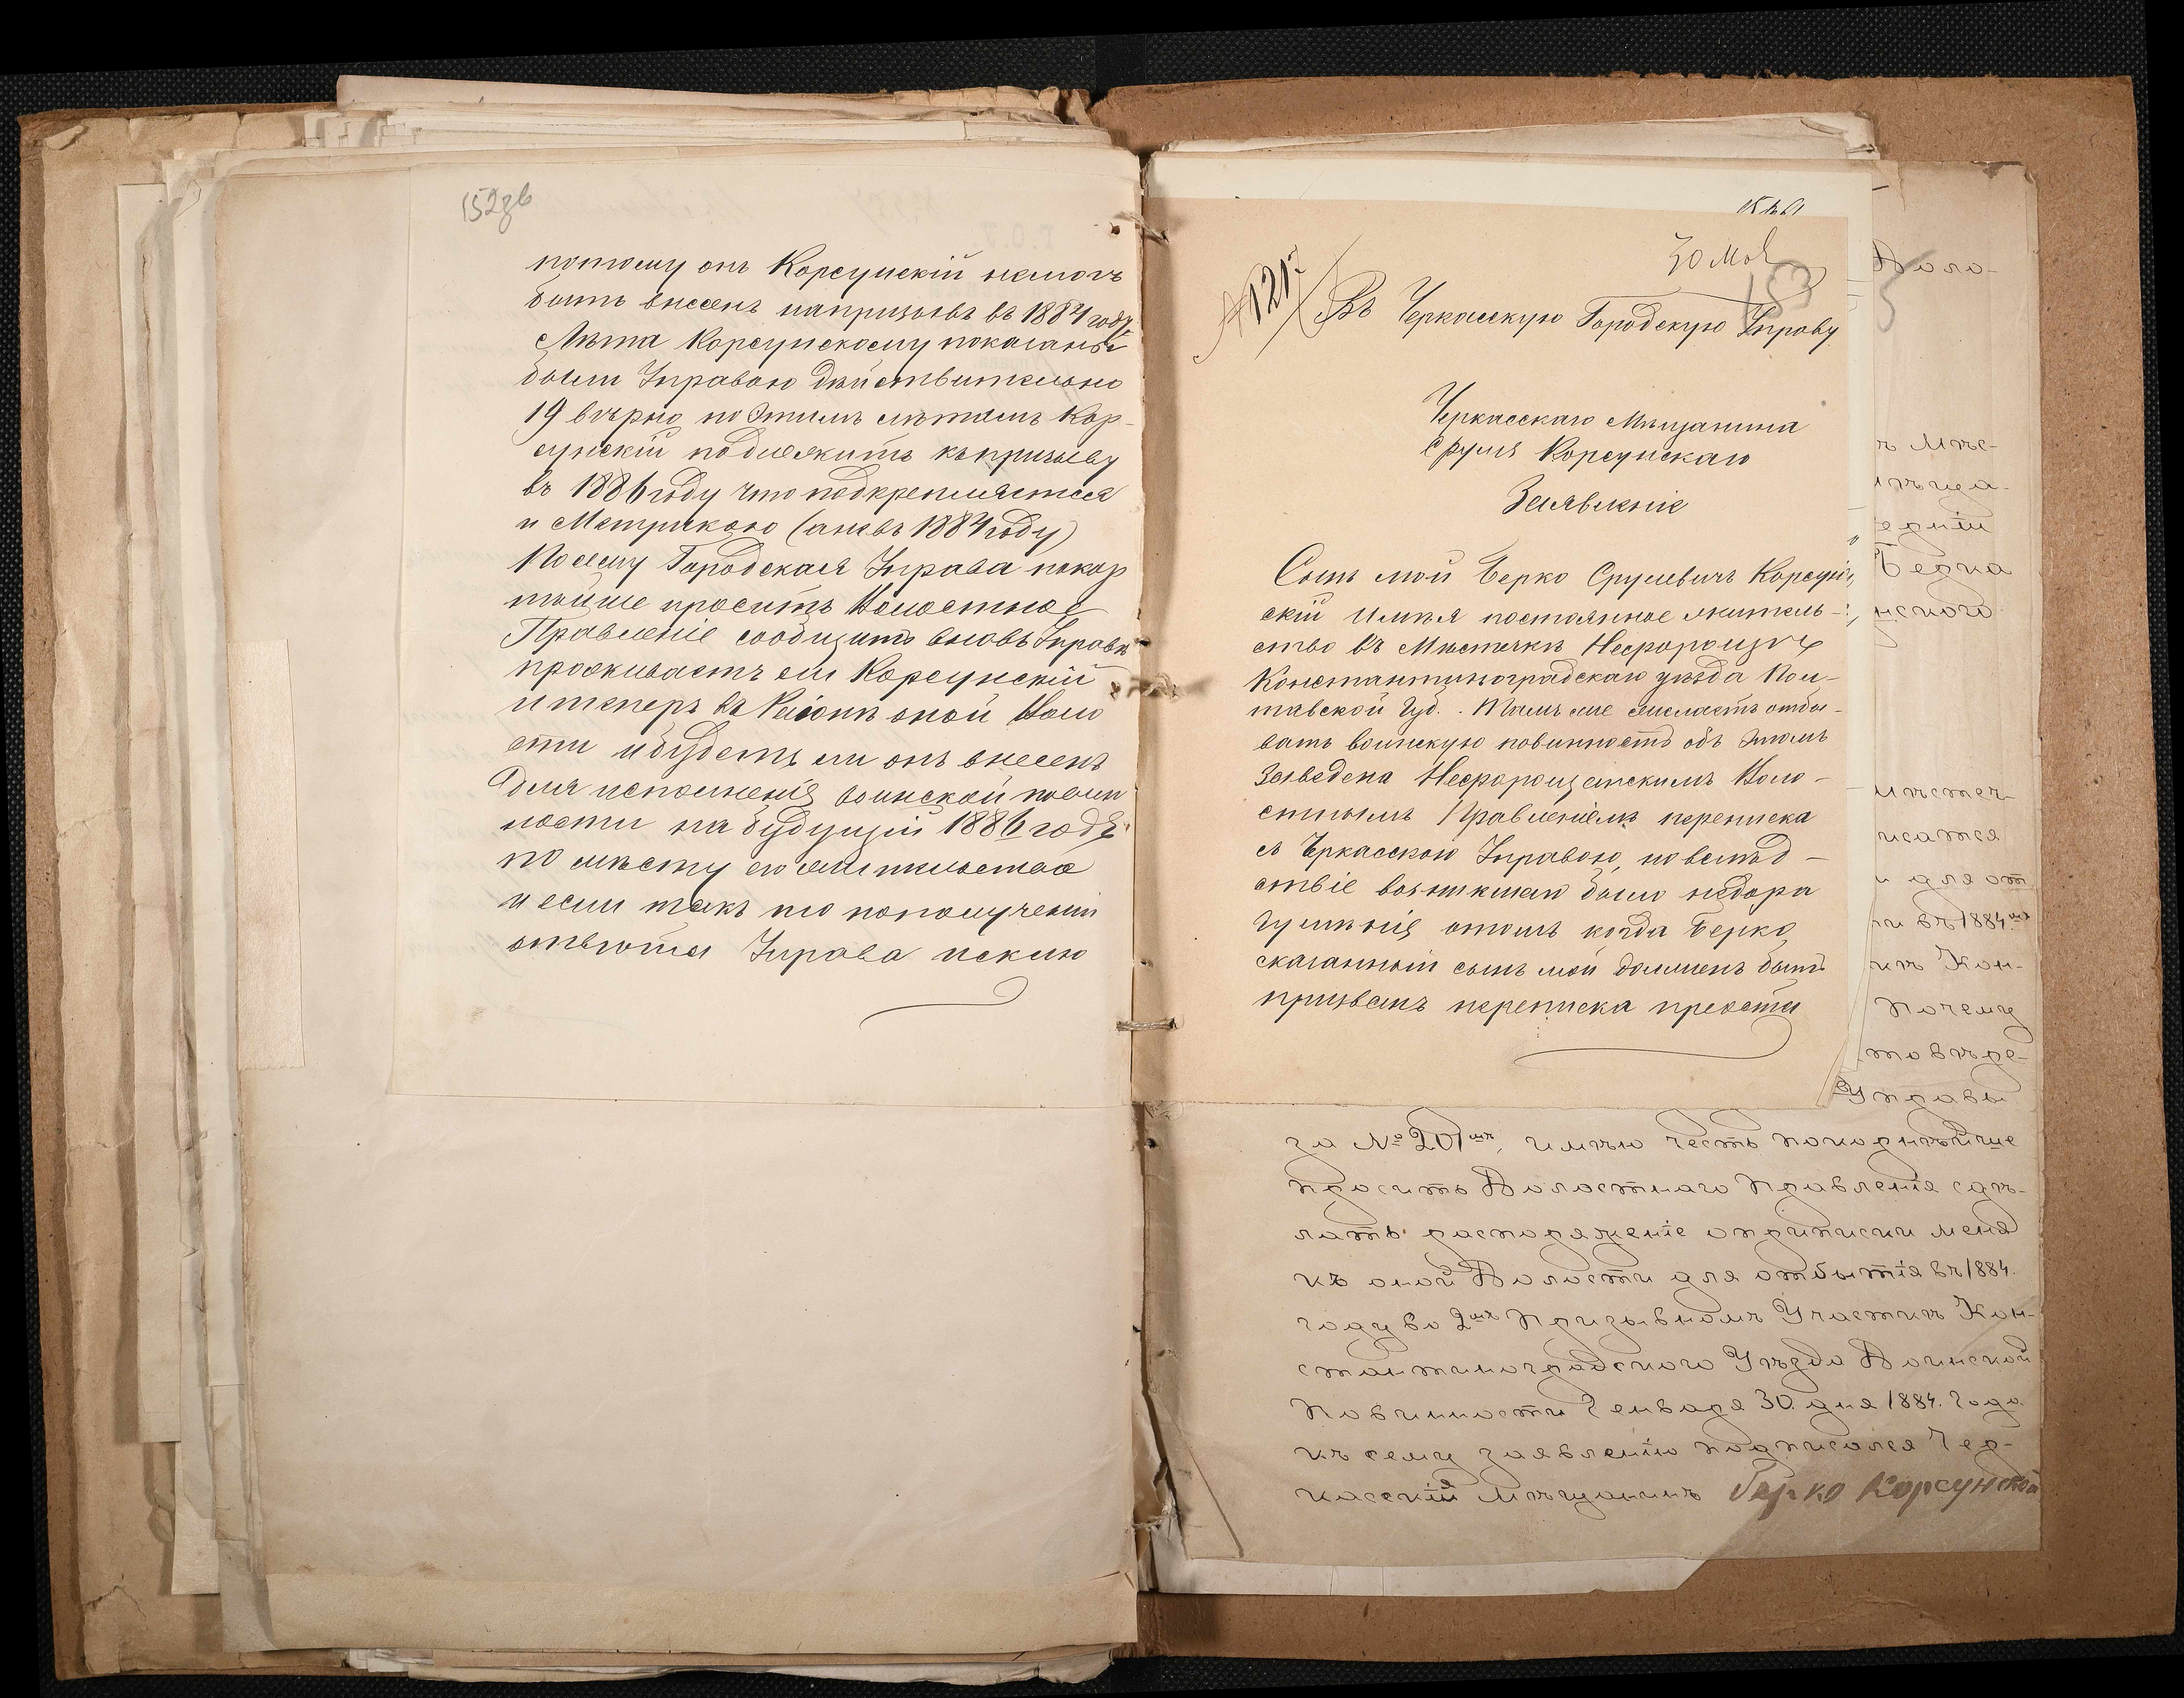 152зв
потому онъ Корсунскій немогъ
быть внесенъ напризывъ въ 1884 году
Лѣта Корсунскому показаны
были Управою дѣйствительно
19 вѣрно, по этимъ лѣтамъ Кор-
сунскій подлежитъ къпризыву
въ 1886 году что подкрепляется
и Метрикою (аневъ 1884 году)
Посему Городская Управа покор
нѣйше проситъ Волостное
Правленіе сообщить вновь Управѣ
проживаетъ ли Корсунскій
и теперь въ Раіонѣ оной Воло
сти и будетъ ли онъ внесенъ
для исполненія воинской повин
ности на будущій 1886 годъ
по мѣсту его жительства
и если такъ то пополученіи
отвѣта Управа искл��
153
№ 121
Въ Черкасскую Городскую Управу
Черкасскаго Мѣщанина
Сруля Корсунскаго
Заявленіе
Сынъ мой Берко Срулевичъ Корсун-
скій имѣя постоянное житель-
ство въ Мѣстечкѣ Нехворощѣ
Константиноградскаго уѣзда Пол-
тавской Губ. Тамъ же желаетъ отбы-
вать воинскую повинность объ этомъ
заведена Нехворощанскимъ Воло-
стнымъ Правленіемъ переписка
съ Черкасскою Управою, но вслѣд-
ствіе возникшаго было недора
зумѣнія отомъ когда Берко
сказанный сынъ мой долженъ быть
призванъ переписка преоста
Воло-
ъ Мѣс-
Берка
нского
мѣстеч-
писатся
и для от
ти въ 1884мъ
кѣ Кон-
почему
товѣре-
Управы
за № 201мъ, имѣю честь покорнѣйше
просить Волостнаго Правленія сдѣ-
лать распоряженіе оприписки меня
къ оной Волости для отбытія въ 1884.
году во 2мъ Призывномъ Участкѣ Кон-
стантиноградского Уѣзда Воинской
Повинности Генваря 30. дня 1884. Года
къ сему заявленію подписался Чер-
касскій Мѣщанинъ Берко Корсунской